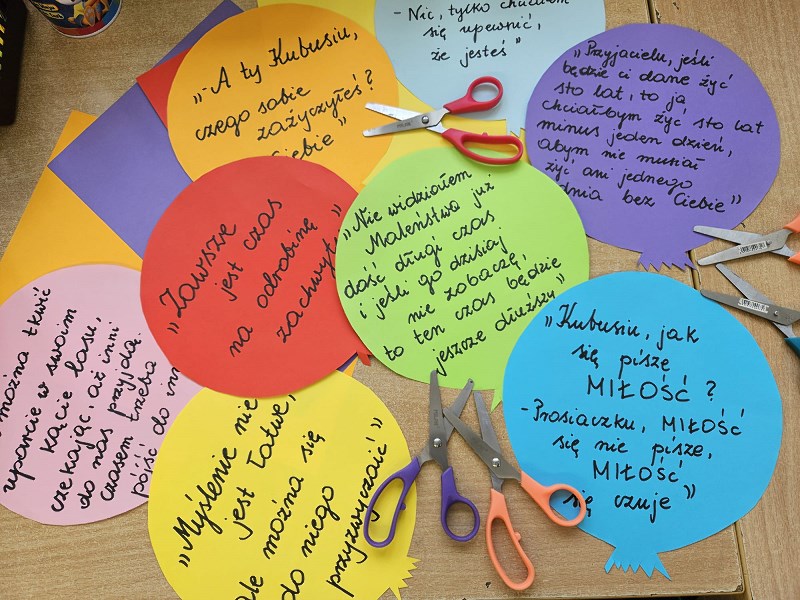 - Nic, tylko chciałem
się upewnić,
że jesteś"
„- A ty Kubusiu,
czego sobie
zażyczyłeś?
Ciebie"
„Przyjacielu, jeśli
będzie ci dane żyć
sto lat, to ja
chciałbym żyć sto lat
minus jeden dzień,
abym nie musiał
żyć ani jednego
dnia bez Ciebie"
„Zawsze
jest czas
na odrobinę
zachwytu"
„Nie widziałem
Maleństwa już
dość długi czas
i jeśli go dzisiaj
nie zobaczę,
to ten czas będzie
jeszcze dłuższy"
można tkwić
uparcie w swoim
kącie lasu,
czekając, aż inni
do nas przyjdą.
czasem trzeba
pójść do
„Myślenie nie
jest łatwe,
ale można się
do niego
przyzwyczaić"
„Kubusiu, jak
się piszę
MIŁOŚĆ?
- Prosiaczku, MIŁOŚĆ
się nie pisze,
MIŁOŚĆ
się czuje"